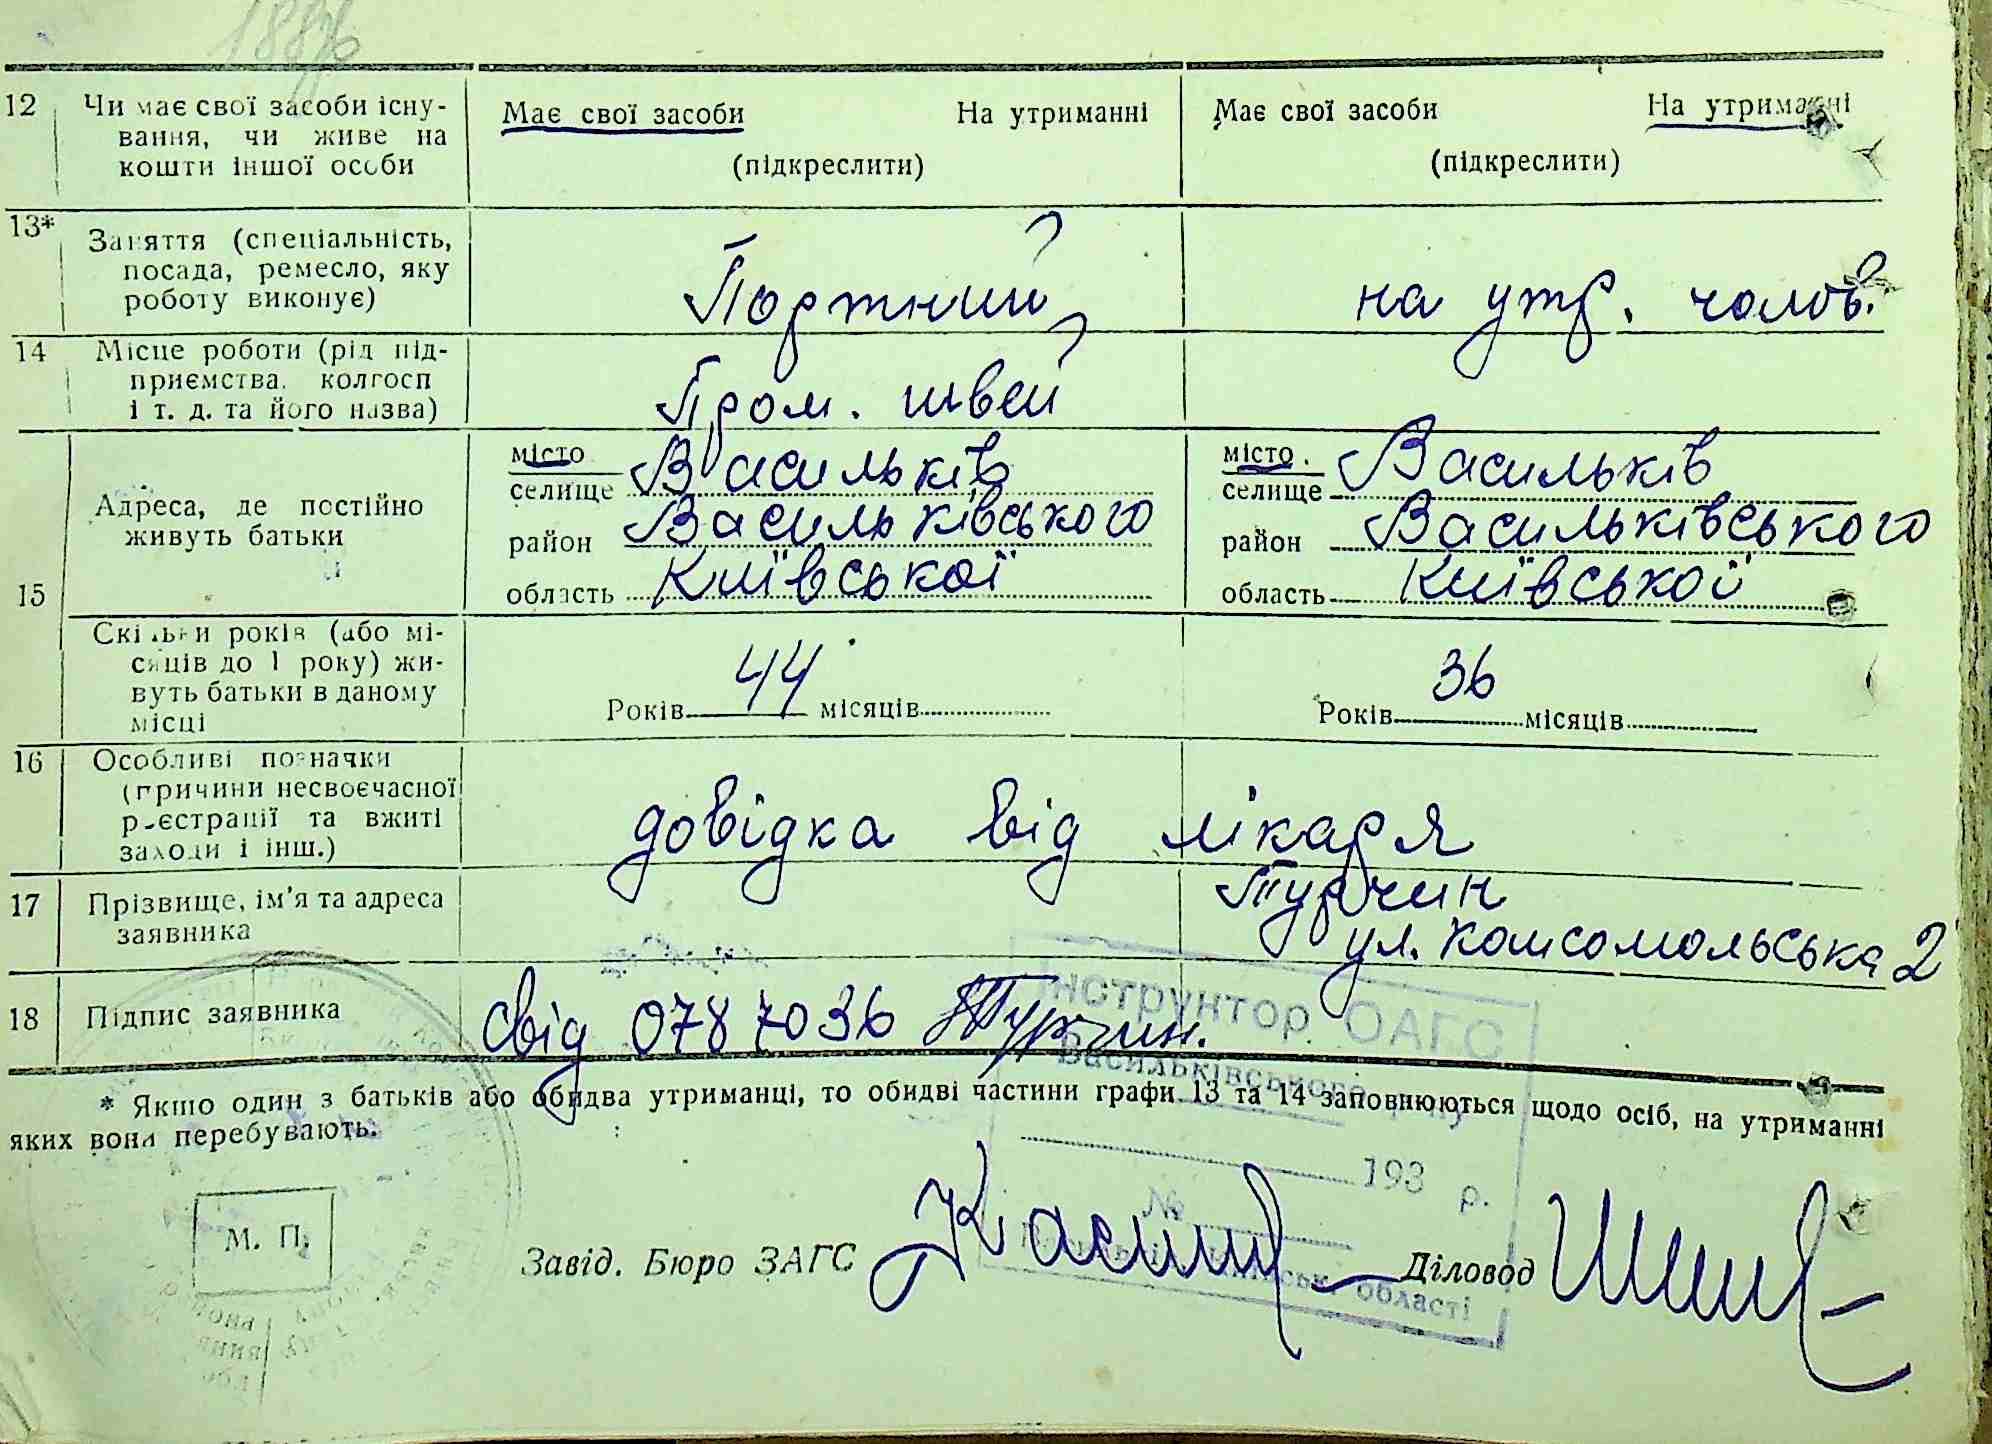 12 Чи має свої засоби існу- Має свої засоби На утриманні Має свої засоби На утриманні
вання, чи живе на
кошти іншої особи (підкреслити) (підкреслити)
13* Заняття (спеціальність,
посада, ремесло, яку
роботу виконує) Портний на утр. чолов.
14 Місце роботи (рід під-
приємства, колгосп
і т. д. та його назва) Пром. швей
15 Адреса, де постійно
живуть батьки
місто Васильків місто Васильків
селище селище
район Васильківського район Васильківського
область Київської область Київської
Скільки років (або мі-
сяців до 1 року) жи-
вуть батьки в даному
місці Років 44 місяців Років 36 місяців
16 Особливі позначки
(причини несвоєчасної
реєстрації та вжиті
заходи і інш.) довідка від лікаря
17 Прізвище, ім'я та адреса Турчин
заявника ул. Комсомольська 2
18 Підпис заявника Свід 0787036 Турчин.
Інструктор ОАГС
Васильківського
* Якщо один з батьків або обидва утриманці, то обидві частини графи 13 та 14 заповнюються щодо осіб, на утриманні
яких вони перебувають.
193 р.
№
М. П.
Завід. Бюро ЗАГС Діловод
області